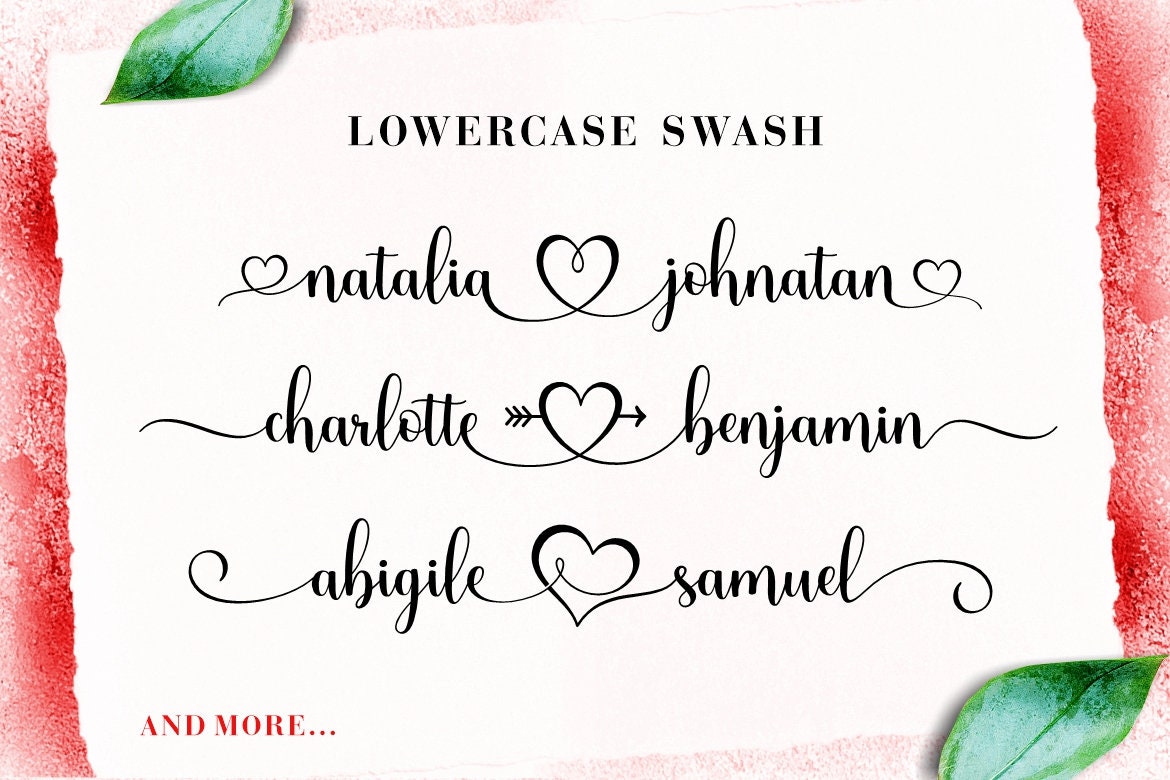 LOWERCASE SWASH
natalia johnatan
charlotte benjamin
abigile samuel
AND MORE...